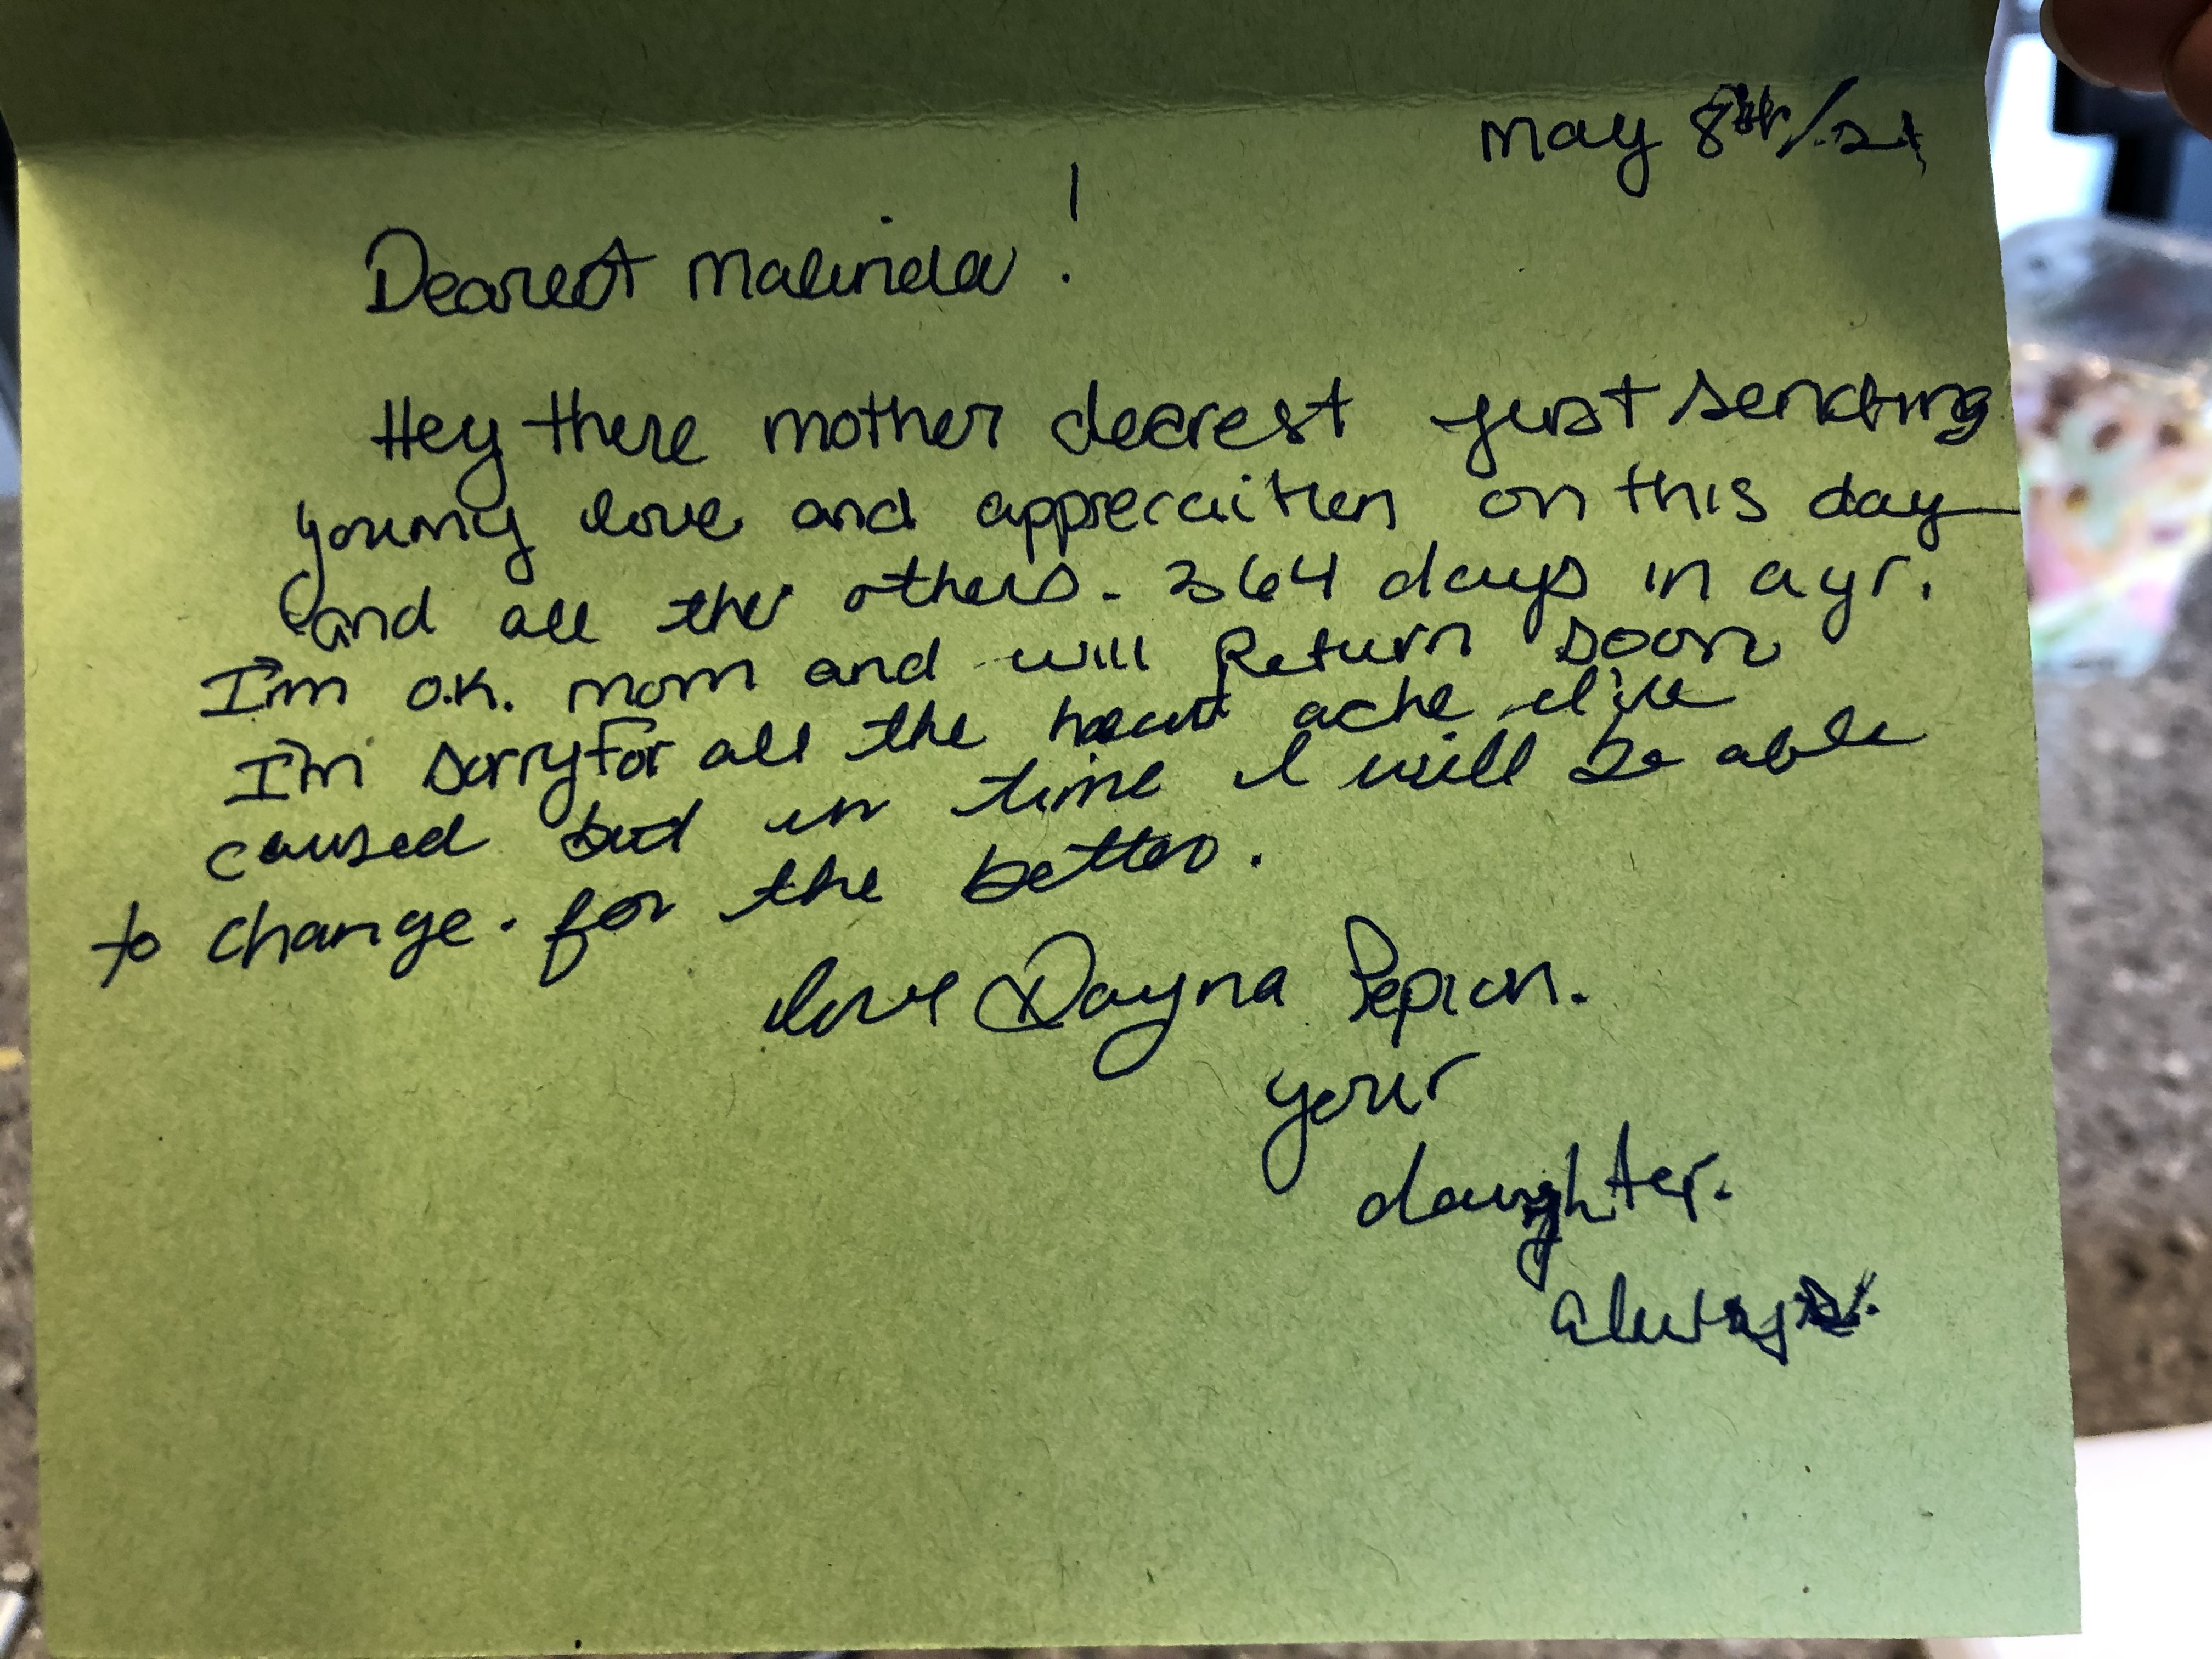 May 8th/21
Dearest Malinda!
Hey there mother dearest just sending
you my love and appreciaitien on this day
and all the others. 364 days in a yr.
I'm o.k. mom and will Return soon
I'm sorry for all the heart ache I've
caused but in time I will be able
to change. for the better.
love Dayna Pepion.
your
daughter.
always.